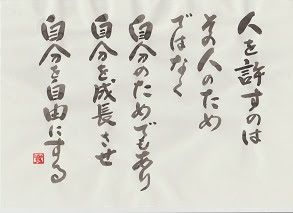 人を許すのは
その人のため
ではなく
自分のためでもあり
自分を成長させ
自分を自由にする